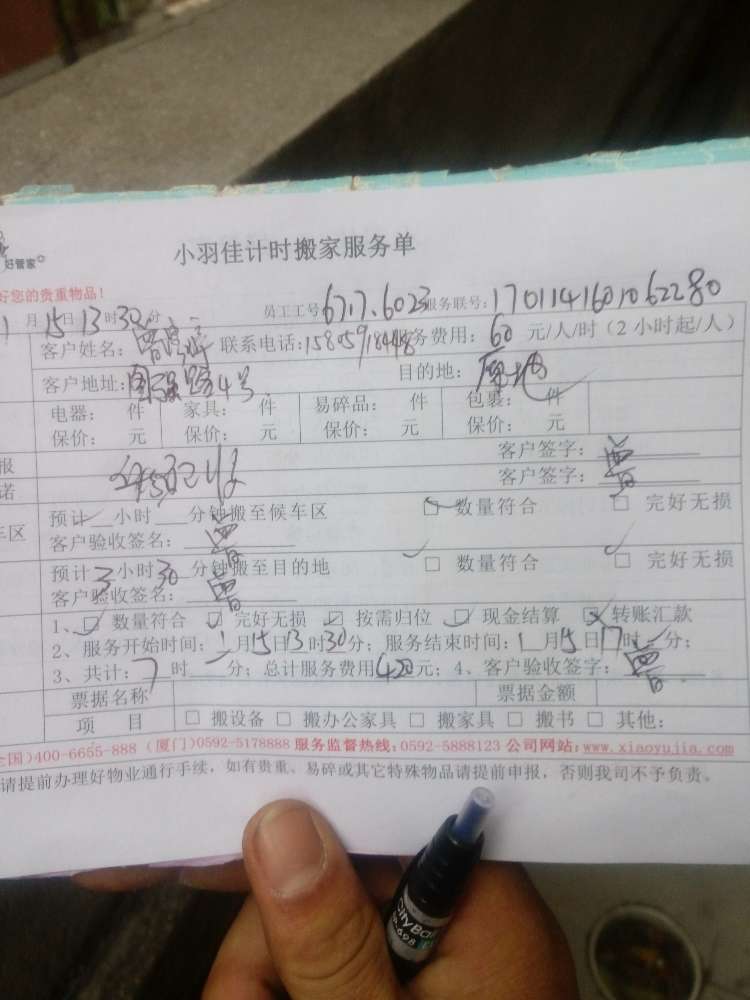 好管家
小羽佳计时搬家服务单
好您的贵重物品！
员工工号:6717.6023 服务联号:1701141601062280
1月15日13时30分
客户姓名:曾 联系电话: 务费用:60元/人/时(2小时起/人)
客户地址: 路4号 目的地:原地
电器: 件 家具: 件 易碎品: 件 包裹: 件
保价: 元 保价: 元 保价: 元 保价: 元
报 客户签字:曾
诺 客户签字:曾
车区 预计 小时 分钟搬至候车区 ☐ 数量符合 ☐ 完好无损
客户验收签名:曾
预计3小时30分钟搬至目的地 ☐ 数量符合 ☐ 完好无损
客户验收签名:曾
1、☑ 数量符合 ☑ 完好无损 ☑ 按需归位 ☑ 现金结算 ☒ 转账汇款
2、服务开始时间:1月15日13时30分; 服务结束时间:1月15日17时 分;
3、共计:7时 分; 总计服务费用420元; 4、客户验收签字:曾
票据名称 票据金额
项 目 ☐ 搬设备 ☐ 搬办公家具 ☐ 搬家具 ☐ 搬书 ☐ 其他:
全国)400-6655-888 (厦门)0592-5178888 服务监督热线:0592-5888123 公司网站:www.xiaoyujia.com
请提前办理好物业通行手续，如有贵重、易碎或其它特殊物品请提前申报，否则我司不予负责。